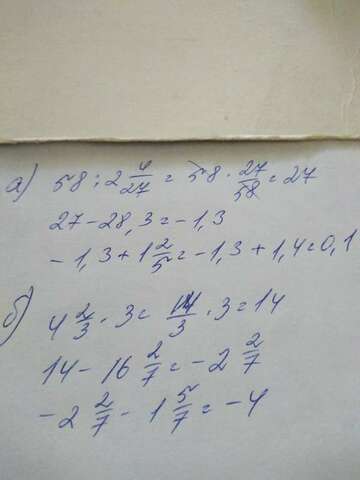 а) 58 : 2 4/27 = 58 · 27/58 = 27
27 - 28,3 = -1,3
-1,3 + 1 2/5 = -1,3 + 1,4 = 0,1
б) 4 2/3 · 3 = 14/3 · 3 = 14
14 - 16 2/7 = -2 2/7
-2 2/7 - 1 5/7 = -4